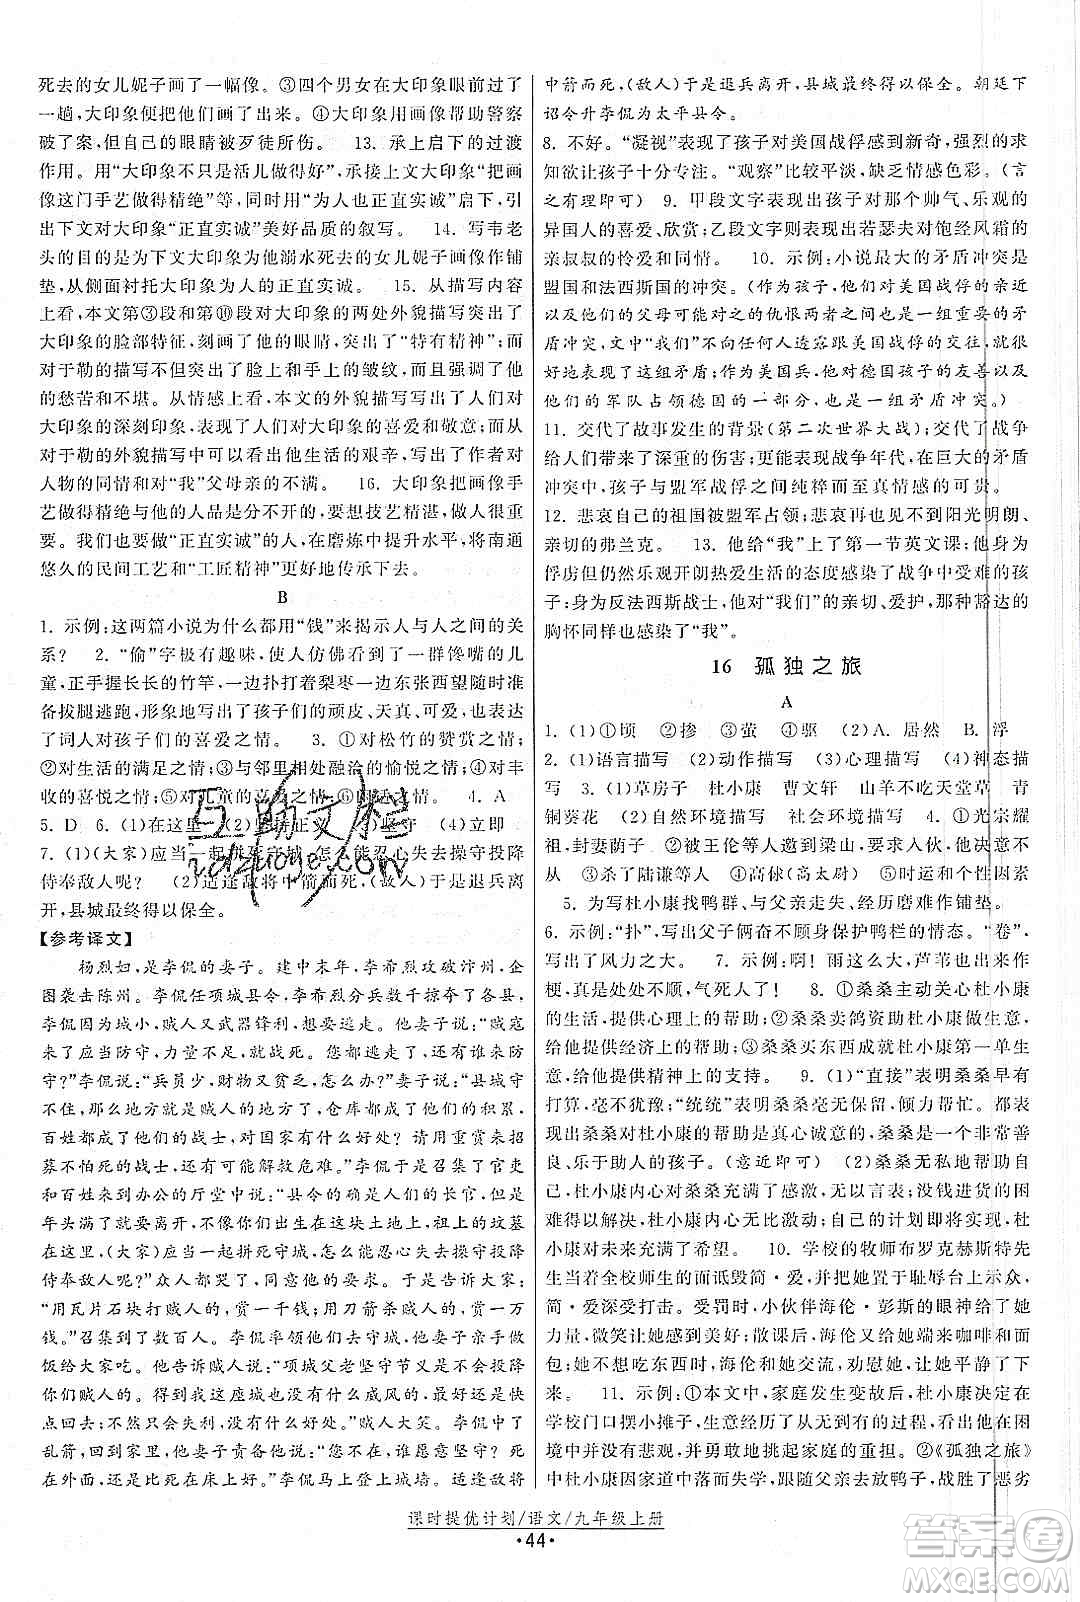 死去的女儿妮子画了一幅像。③四个男女在大印象眼前过了
一趟,大印象便把他们画了出来。④大印象用画像帮助警察
破了案,但自己的眼睛被歹徒所伤。 13. 承上启下的过渡
作用。用“大印象不只是活儿做得好”,承接上文大印象“把画
像这门手艺做得精绝”等,同时用“为人也正直实诚”启下,引
出下文对大印象“正直实诚”美好品质的叙写。 14. 写韦老
头的目的是为下文大印象为他溺水死去的女儿妮子画像作铺
垫,从侧面衬托大印象为人的正直实诚。 15. 从描写内容
上看,本文第③段和第⑩段对大印象的两处外貌描写突出了
大印象的脸部特征,刻画了他的眼睛,突出了“特有精神”;而
对于勒的描写不断突出了他脸上和手上的皱纹,突出了于勒
的愁苦和不堪。从情感上看,本文的外貌描写写出了人们对
大印象的深刻印象,表现了人们对大印象的喜爱和敬意;而对
于勒的外貌描写中表现了于勒生活的艰辛,写出了作者对
人物的同情和对“我”父母亲的不满。 16. 大印象把画像手
艺做得精绝与他的人品是分不开的,要想技艺精湛,做人很重
要。我们也要做一个“正直实诚”的人,在磨炼中提升水平,将南通
悠久的民间工艺和“工匠精神”更好地传承下去。
B
1. 示例:这两篇小说为什么都用“钱”来揭示人与人之间的关
系? 2. “偷”字极有趣味,使人仿佛看到了一群馋嘴的儿
童,正手握长长的竹竿,一边扑打着梨枣一边东张西望随时准
备拔腿逃跑,形象地写出了孩子们的顽皮、天真、可爱,也表达
了词人对孩子们的喜爱之情。 3. ①对松竹的赞赏之情
②对生活的满足之情③与邻里相处融洽的愉悦之情④对丰
收的喜悦之情⑤对儿童的喜爱之情⑥闲适之情 4. A
5. D 6. (1)在这里 (2)坚持正义 (4)立即
7. (1)(大家)应当一起拼死守城,怎么能忍心抛弃操守投降
侍奉敌人呢? (2)适逢敌将中箭而死,(敌人)于是退兵离
开,县城最终得以保全。
【参考译文】
杨烈妇,是李侃的妻子。建中末年,李希烈攻破汴州,企
图袭击陈州。李侃任项城县令,李希烈分兵数千掠夺了各县。
李侃因为城小,贼人又武器锋利,想要逃走。他妻子说:“贼寇
来了应当防守,力量不足,就战死。您如果逃走了,还有谁来防
守呢?”李侃说:“兵员少,财物又贫乏,怎么办?”妻子说:“县城守
不住,那么地方就是贼人的地方了,仓库都成了他们的积蓄,
百姓都成了他们的战士,对国家有什么好处?请用财产来招
募不怕死的战士,或许可以解救危难。”李侃于是召集了官吏
和百姓来到办公的厅堂中说:“县令的确是你们的长官,但任职
年头满了就要离开,不像你们生长在这块土地上,祖上的坟墓
在这里,(大家)应当一起拼死守城,怎么能忍心失去操守投降
侍奉敌人呢?”众人都哭了,同意了他的要求。于是告诉大家:
“用瓦片石块打贼人的,赏一千钱;用刀箭杀贼人的,赏一万
钱。”召集了数百人。李侃率领他们去守城,他妻子亲自烧火做
饭给大家吃。他告诉贼人说:“项城父老坚守节义不会投降
你们这些贼人的。得到我这座城也没有什么威风的,你们还是快
点回去;不要因此失利,没有什么好处。”贼人大笑。李侃中了
乱箭,回到家里,他妻子责备他说:“您不在,那谁愿意坚守?死
在外面不比死在床上好吗?”李侃马上登上城墙。适逢敌将
中箭而死,(敌人)于是退兵离开,县城最终得以保全。朝廷下
诏令升李侃为太平县令。
8. 不好。“凝视”表现了孩子对美国战俘感到新奇,强烈的求
知欲让孩子十分专注。“观察”比较平淡,缺乏情感色彩。(言
之有理即可) 9. 甲段文字表达了对那个帅气、乐观的
异国人的喜爱、欣赏;乙段文字表达了若瑟夫对饱经风霜的
亲叔叔的怜爱和同情。 10. 示例:小说最大的矛盾冲突是
盟国和法西斯国的冲突。(孩子们对美国战俘的亲近与喜
爱,他们的父母可能对他的仇恨两者之间也是一组矛盾冲
突,但文中“我们”不向任何人透露跟美国战俘的会面,也很
好地表现了这组矛盾。作为美国兵,他对德国孩子的友善与
他们的军队占领德国的一部分,也是一组矛盾冲突。)
11. 交代了故事发生的背景(第二次世界大战);交代了战争
给人们带来了深重的伤害;更能凸显战争年代,在巨大的矛盾
冲突中,孩子与盟军战俘之间纯粹而真情感的可贵。
12. 悲哀自己的祖国被盟军占领;悲哀也见不到阳光明朗、
亲切的弗兰克。 13. 他给“我”上了第一节英文课;他身为
俘虏但仍然乐观开朗热爱生活的态度感染了战争中受难的孩
子;身为反法西斯战士,他对“我们”的亲切、爱护,那种豁达的
胸怀同样也感染了“我”。
16 孤独之旅
A
1. (1)①顷 ②掺 ③萤 ④驱 (2)A. 居然 B. 浮
2. (1)语言描写 (2)动作描写 (3)心理描写 (4)神态描
写 3. (1)草房子 杜小康 曹文轩 山羊不吃天堂草 青
铜葵花 (2)自然环境描写 社会环境描写 4. ①光宗耀
祖,封妻荫子 ②被王伦等人逐出梁山,要求入伙,失魂落魄
③杀了陆谦等人 ④高俅(高太尉) ⑤时运和个性的原因
5. 为写杜小康找鸭群、与父亲走失、经历磨难作铺垫。
6. 示例:“扑”,写出父子俩奋不顾身保护鸭栏的情态。“卷”,
写出了风力之大。 7. 示例:啊!雨这么大,芦苇也在作
梗,真是不顺,气死人了! 8. ①桑桑主动关心杜小康
的生活,提供心理上的帮助;②桑桑卖鸽资助杜小康做生意,
给他提供经济上的帮助;③桑桑买东西成就杜小康第一单生
意,给他提供精神上的支持。 9. (1)“直接”表明桑桑早有
打算,毫不犹豫;“统统”表明桑桑毫无保留,倾力帮忙。都表
现出桑桑对杜小康的帮助是真心诚意的,桑桑是一个非常善
良、乐于助人的孩子。(意近即可) (2)桑桑无私地帮助了
杜小康,杜小康内心对桑桑充满了感激,无以言表;没钱进货的困
难得以解决,杜小康内心无比激动;自己的计划即将实现,杜
小康对未来充满了希望。 10. 学校的牧师布罗克赫斯特先
生当着全校师生的面诋毁简·爱,并把她置于耻辱台上示众,
简·爱深受打击。受罚时,小伙伴海伦·彭斯的眼神给了她
力量,微笑让她感动;散课后,海伦又给她端来咖啡和面包,并
且与她交流,劝慰她,让她平静了下
来。 11. 示例:①本文中,家庭发生变故后,杜小康决定在
学校门口摆小摊子,生意经历了从无到有的过程,看出他在困
境中没有悲观,并勇敢地挑起家庭的重担。②《孤独之旅》
中杜小康因家道中落而失学,跟随父亲去放鸭子,战胜了恶劣
课时提优计划/语文/九年级上册
·44·
互助文档
idzuoye.com
答案圈
MXQE.COM